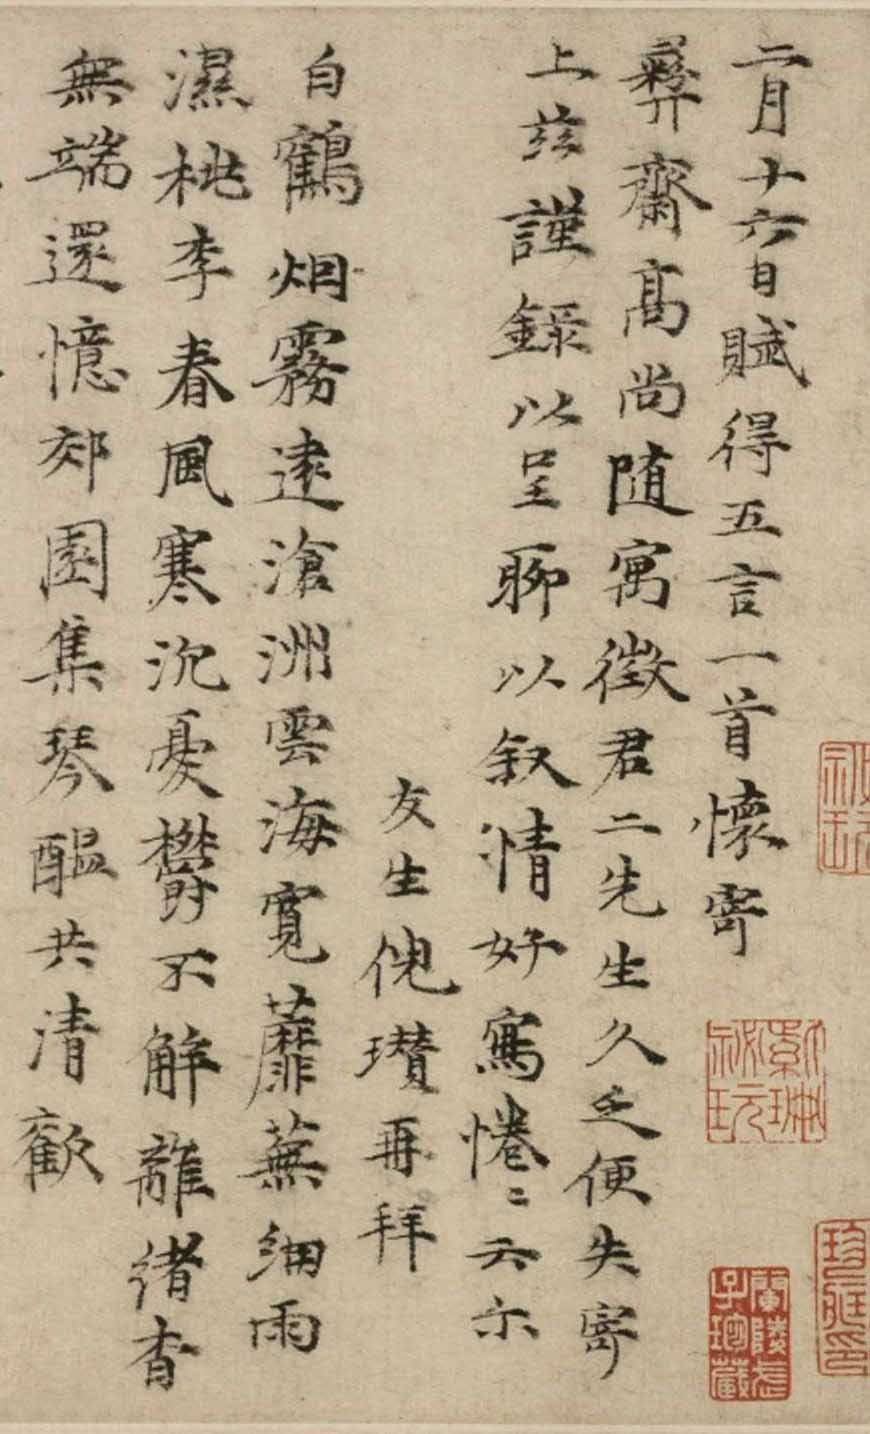 二月十六日賦得五言一首懷寄
彜齋高尚随寓徵君二先生久乏便失寄
上茲謹錄以呈聊以叙情好寫惓〻云尒
友生倪瓚再拜
白鶴烟霧逺滄洲雲海寬蘼蕪細雨
濕桃李春風寒沉憂欝不解離緒杳
無端還憶郊園集琴醖共清歡